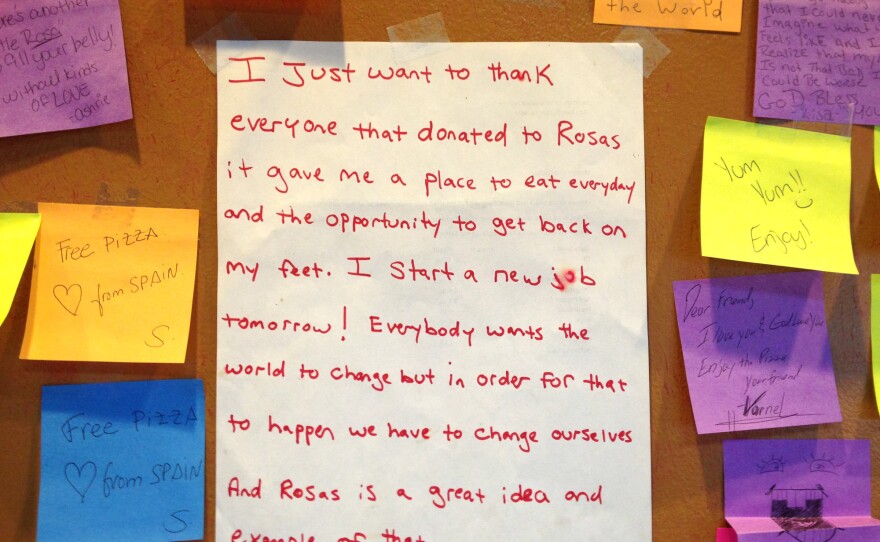 I Just want to thank
everyone that donated to Rosas
it gave me a place to eat everyday
and the opportunity to get back on
my feet. I start a new job
tomorrow! Everybody wants the
world to change but in order for that
to happen we have to change ourselves
And Rosas is a great idea and
example of that
another
Rosa
fill your belly!
OF LOVE
the World
that I could never
Imagine what
Feels like and I
Realize that my
Is not That Bad I
Could Be worse
GOD Bless
Free PIZZA
♡ from SPAIN.
S.
Free PIZZA
♡ from SPAIN
S
Yum
Yum!!
Enjoy!
Dear Friend,
I love you & God Love You
Enjoy the Pizza
your friend